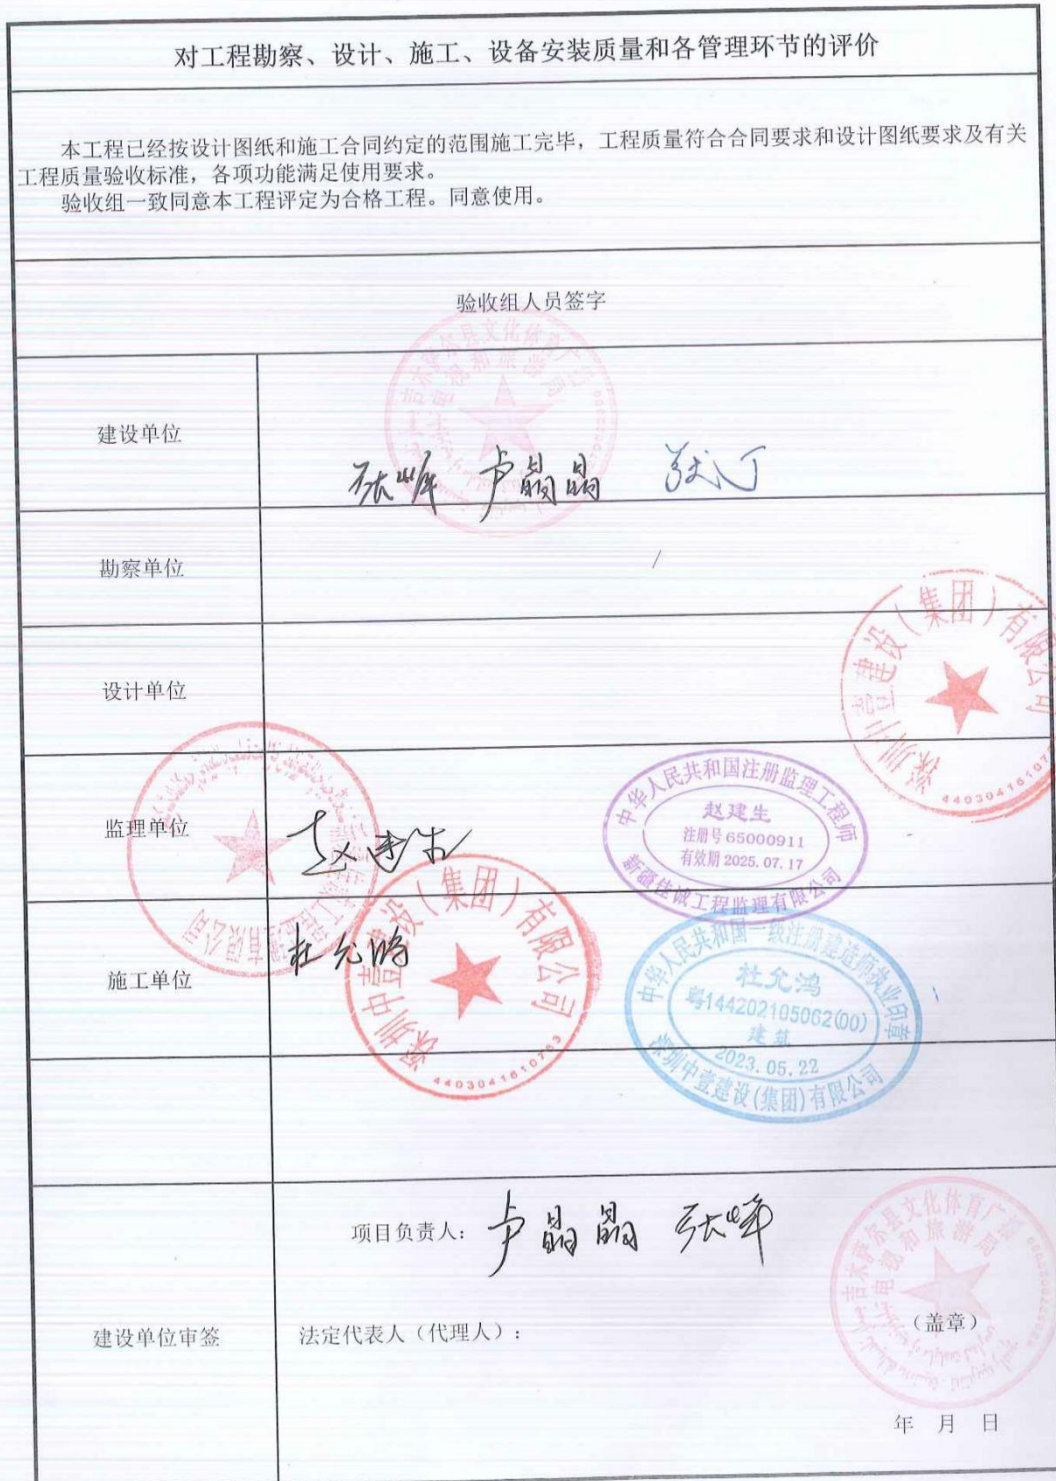 对工程勘察、设计、施工、设备安装质量和各管理环节的评价
本工程已经按设计图纸和施工合同约定的范围施工完毕，工程质量符合合同要求和设计图纸要求及有关
工程质量验收标准，各项功能满足使用要求。
验收组一致同意本工程评定为合格工程。同意使用。
验收组人员签字
吉木萨尔县文化体育广播
电视和旅游局
建设单位
张峰 卢晶晶
勘察单位
/
深圳中壹建设（集团）有限公司
设计单位
监理单位
赵建生
中华人民共和国注册监理工程师
赵建生
注册号65000911
有效期2025.07.17
新疆佳诚工程监理有限公司
施工单位
杜允鸿
深圳中壹建设（集团）有限公司
4403041610763
中华人民共和国一级注册建造师执业印章
杜允鸿
粤144202105062(00)
建筑
2023.05.22
深圳中壹建设(集团)有限公司
建设单位审签
项目负责人：卢晶晶 张峰
法定代表人（代理人）：
吉木萨尔县文化体育广播
电视和旅游局
（盖章）
年 月 日